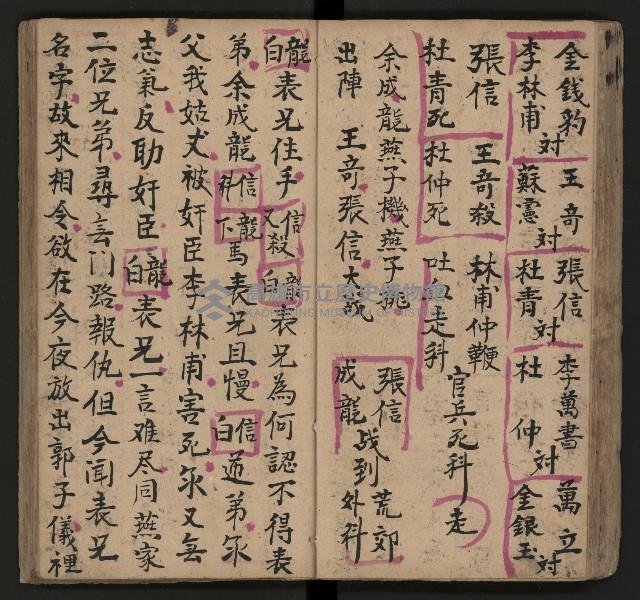 金錢豹 對 王奇 對 張信 對 李萬書 對 萬立
李林甫 對 蘇憲 對 杜青 對 杜仲 對 金銀玉
張信 王奇殺 林甫仲鞭 官兵死科 走
杜青死 杜仲死 吐 走科
余成龍燕子機燕子 張信成龍战到荒郊外科
出陣 王奇張信大战
龍白表兄住手 信又殺 龍白表兄為何認不得表
弟余成龍 信科 龍下馬表兄且慢 信白 道弟尔
父我姑丈被奸臣李林甫害死尔又無
志氣反助奸臣 龍白表兄一言难尽同燕家
二位兄弟尋無門路報仇但今聞表兄
名字故來相会欲在今夜放出郭子儀裡
高雄市立歷史博物館
KAOHSIUNG MUSEUM OF HISTORY